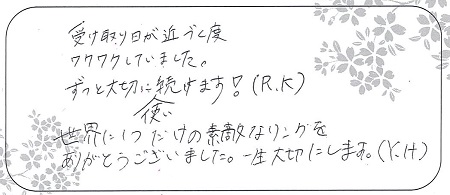 受け取り日が近づく度
ワクワクしていました。
ずっと大切に使い続けます!(R.K)
世界に1つだけの素敵なリングを
ありがとうございました。一生大切にします。(Y.H)